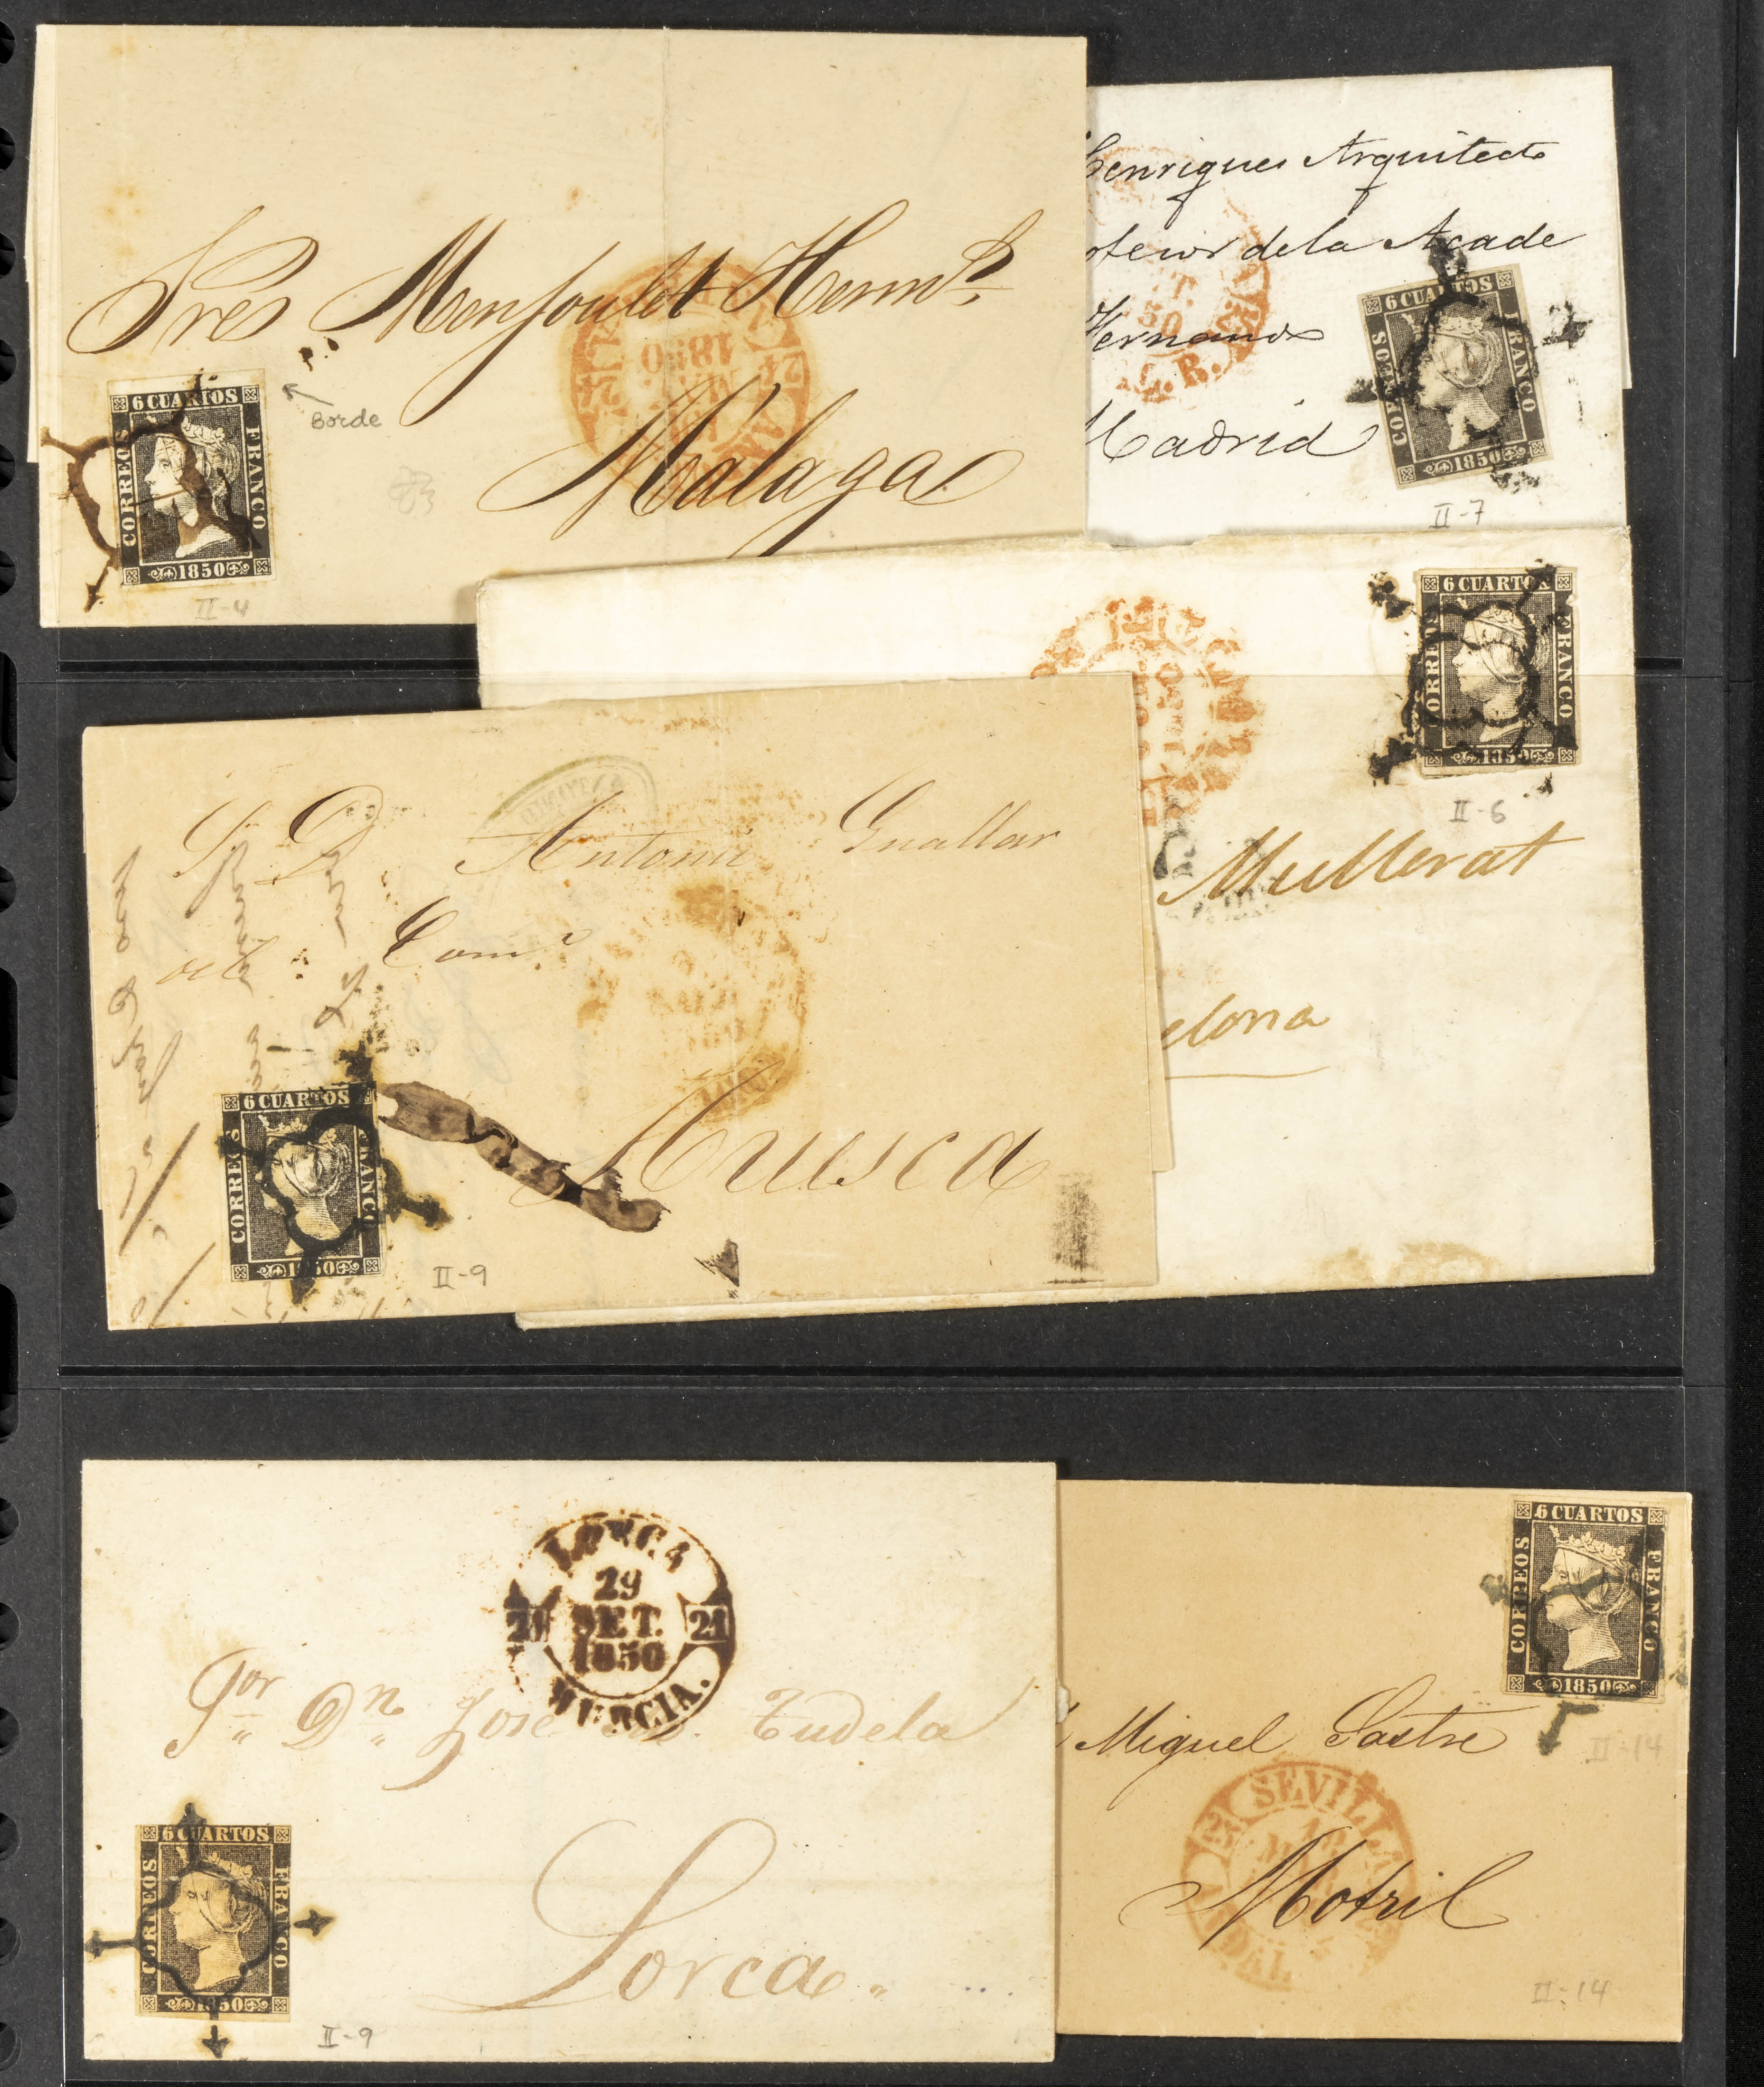 Sres Monsoulet Herms.
Málaga
Borde
6 CUARTOS
CORREOS
FRANCO
1850
II-4
24
1850
24
Henriques Arquitecto
de la Acade
Hernando
Madrid
50
6 CUARTOS
CORREOS
FRANCO
1850
II-7
6 CUARTOS
CORREOS
FRANCO
1850
II-6
Mullerat
elona
Sr. D. Antonio Guallar
del Com.o
Huesca
6 CUARTOS
CORREOS
FRANCO
1850
II-9
LORCA
29
SET.
1850
21
21
MURCIA.
Sor Dn Jose Tudela
Lorca.
6 CUARTOS
CORREOS
FRANCO
1850
II-9
6 CUARTOS
CORREOS
FRANCO
1850
II-14
Miguel Sastre
SEVILLA
Motril
II-14